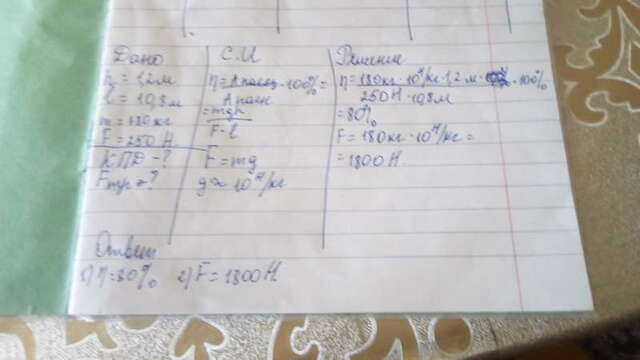 Дано
h = 1,2 м
l = 10,8 м
m = 180 кг
F = 250 Н
КПД - ?
Fтр = ?
С.И
η = Aполез · 100% =
Aполн
= mgh
F · l
F = mg
g ≈ 10 Н/кг
Решение
η = 180 кг · 10 Н/кг · 1,2 м · 100%
250 Н · 10,8 м
= 80%
F = 180 кг · 10 Н/кг =
= 1800 Н
Ответ
1) η = 80% 2) F = 1800 Н